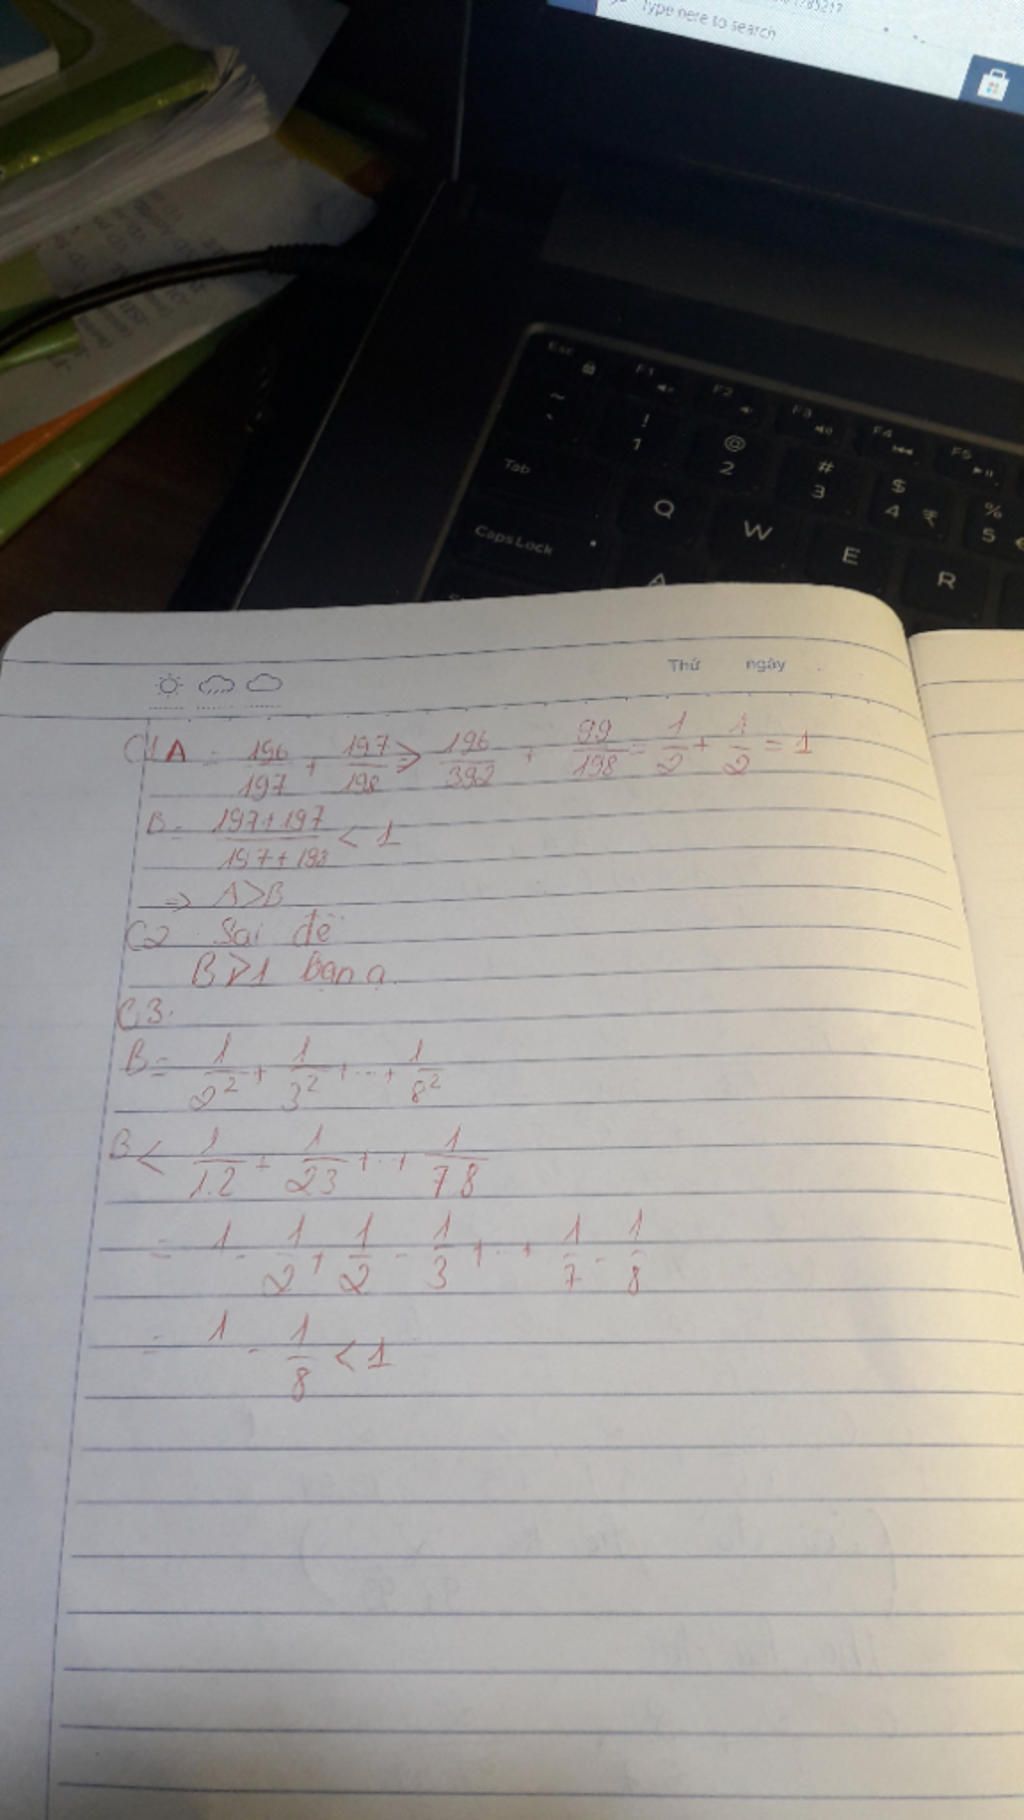 Type here to search
Esc F1 F2 F3 F4 F5
~ ` ! 1 @ 2 # 3 $ 4 ₹ % 5 €
Tab Q W E R
Caps Lock A
Thứ ngày
C1 A = 196/197 + 197/198 > 196/392 + 99/198 = 1/2 + 1/2 = 1
B = (197+197)/(197+198) < 1
=> A>B
C2 Sai đề
B>1 bạn ạ.
C3.
B = 1/2² + 1/3² + ... + 1/8²
B < 1/1.2 + 1/23 + .. + 1/7.8
= 1 - 1/2 + 1/2 - 1/3 + .. + 1/7 - 1/8
= 1 - 1/8 < 1